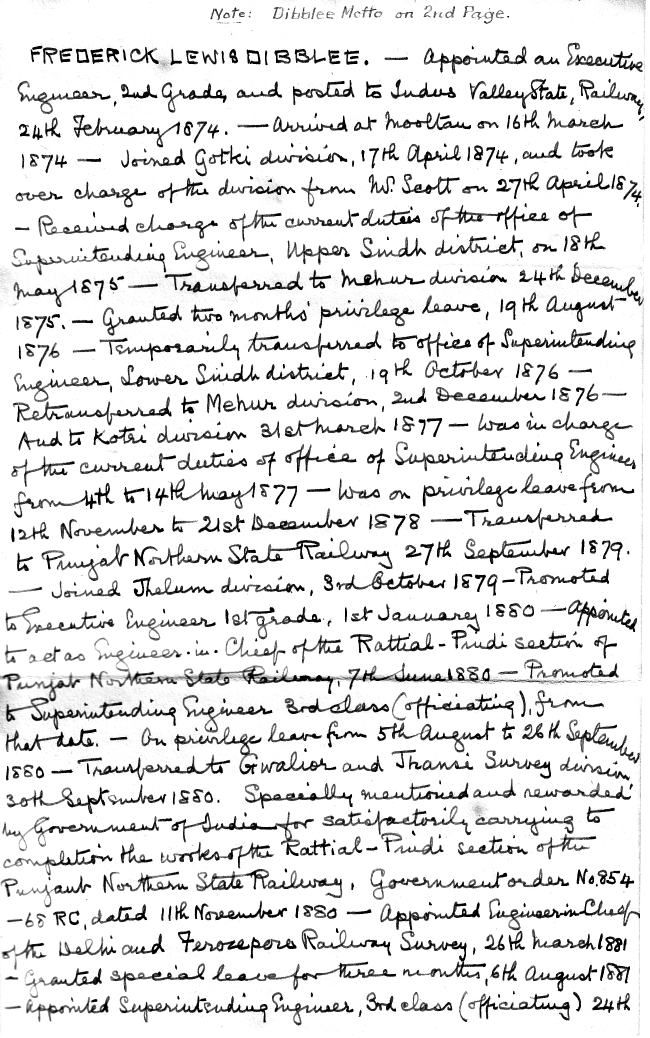 Note: Dibblee Motto on 2nd Page.
FREDERICK LEWIS DIBBLEE. — Appointed an Executive
Engineer, 2nd Grade, and posted to Indus Valley State, Railway,
24th February 1874. — Arrived at Mooltan on 16th March
1874 — Joined Gotki division, 17th April 1874, and took
over charge of the division from Mr. Scott on 27th April 1874.
— Received charge of the current duties of the office of
Superintending Engineer, Upper Sindh district, on 18th
May 1875 — Transferred to Mehur division 24th December
1875. — Granted two months' privilege leave, 19th August
1876 — Temporarily transferred to office of Superintending
Engineer, Lower Sindh district, 19th October 1876 —
Retransferred to Mehur division, 2nd December 1876 —
And to Kotri division 31st March 1877 — Was in charge
of the current duties of office of Superintending Engineer
from 4th to 14th May 1877 — Was on privilege leave from
12th November to 21st December 1878 — Transferred
to Punjab Northern State Railway 27th September 1879.
— Joined Jhelum division, 3rd October 1879 — Promoted
to Executive Engineer 1st grade, 1st January 1880 — Appointed
to act as Engineer-in-Chief of the Rattial-Pindi section of
Punjab Northern State Railway, 7th June 1880 — Promoted
to Superintending Engineer 3rd class (officiating), from
that date. — On privilege leave from 5th August to 26th September
1880 — Transferred to Gwalior and Jhansi Survey division
30th September 1880. Specially mentioned and rewarded
by Government of India for satisfactorily carrying to
completion the works of the Rattial-Pindi section of the
Punjaub Northern State Railway, Government order No. 854
—68 RC, dated 11th November 1880 — Appointed Engineer in Chief
of the Delhi and Ferozepore Railway Survey, 26th March 1881
— Granted special leave for three months, 6th August 1881
— Appointed Superintending Engineer, 3rd class (officiating) 24th